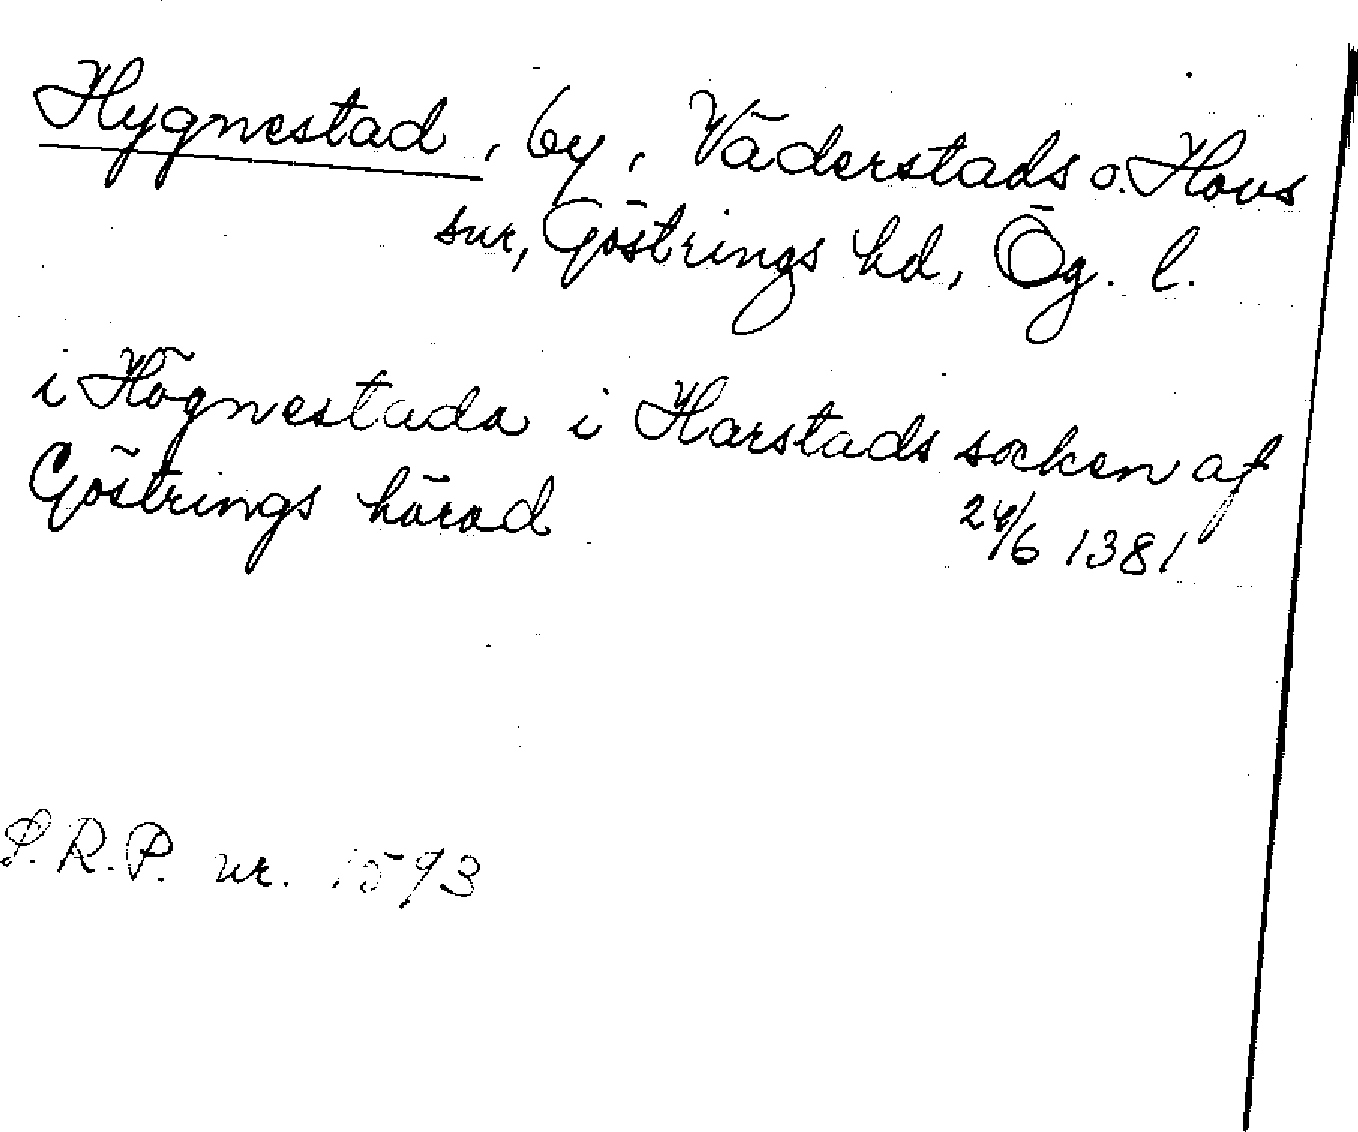 Hygnestad, by, Väderstads o. Hovs
snr, Göstrings hd, Ög. l.
i Högnestada i Harstads socken af
Göstrings härad 24/6 1381
S.R.P. nr. 1593